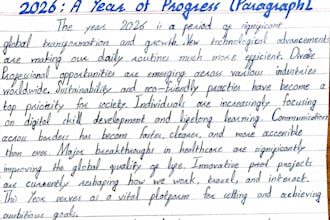 2026: A Year of Progress (Paragraph)
The year 2026 is a period of significant
global transformation and growth. New technological advancements
are making our daily routines much more efficient. Diverse
professional opportunities are emerging across various industries
worldwide. Sustainability and eco-friendly practices have become a
top priority for society. Individuals are increasingly focusing
on digital skill development and lifelong learning. Communication
across borders has become faster, clearer, and more accessible
than ever. Major breakthroughs in healthcare are significantly
improving the global quality of life. Innovative projects
are currently reshaping how we work, travel, and interact.
This year serves as a vital platform for setting and achieving
ambitious goals.